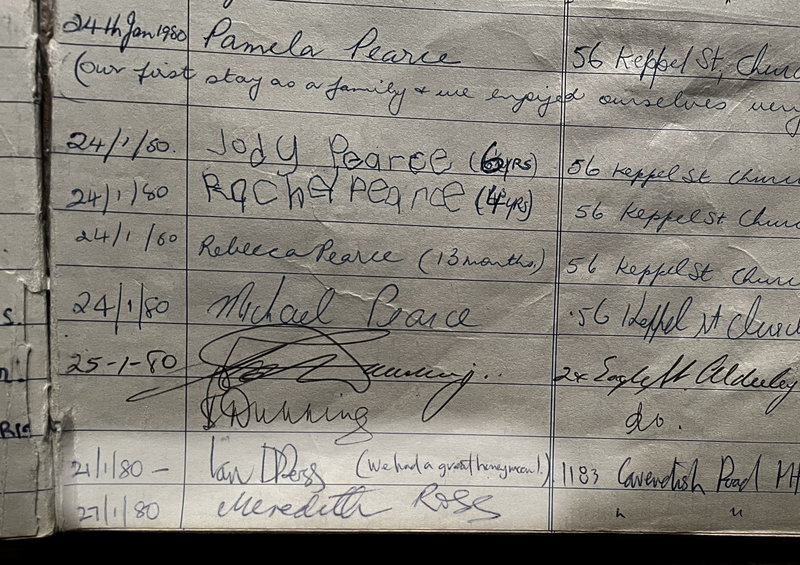 24th Jan 1980 Pamela Pearce 56 Keppel St, Churc
(Our first stay as a family & we enjoyed ourselves very
24/1/80. Jody Pearce (6yrs) 56 Keppel St Churc
24/1/80 Rachel Pearce (4yrs) 56 Keppel St Churc
24/1/80 Rebecca Pearce (13 months) 56 Keppel St Churc
s. 24/1/80 Michael Pearce 56 Keppel St Church
25-1-80 Dunning.. 24 Eagle St Alderley
Dunning do.
21/1/80 - Ian D Ross (We had a great honeymoon!) 1183 Cavendish Road Mt
27/1/80 Meredith Ross " "